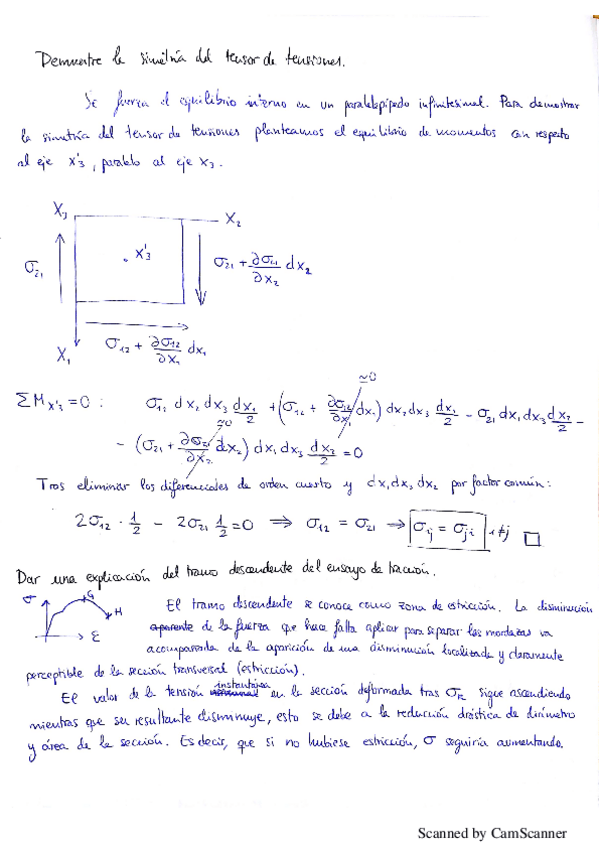 Demuestre la simetría del tensor de tensiones.
Se fuerza el equilibrio interno en un paralelepípedo infinitesimal. Para demostrar
la simetría del tensor de tensiones planteamos el equilibrio de momentos con respecto
al eje x'₃, paralelo al eje x₃.
X₃ X₂
x'₃
σ₂₁ σ₂₁ + ∂σ₂₁/∂x₂ dx₂
X₁ σ₁₂ + ∂σ₁₂/∂x₁ dx₁
≃0
ΣM x'₃ = 0 : σ₁₂ dx₂ dx₃ dx₁/2 + (σ₁₂ + ∂σ₁₂/∂x₁ dx₁) dx₂ dx₃ dx₁/2 - σ₂₁ dx₁ dx₃ dx₂/2 -
≃0
- (σ₂₁ + ∂σ₂₁/∂x₂ dx₂) dx₁ dx₃ dx₂/2 = 0
Tras eliminar los diferenciales de orden cuarto y dx₁ dx₃ dx₂ por factor común:
2σ₁₂ · 1/2 - 2σ₂₁ 1/2 = 0 ⇒ σ₁₂ = σ₂₁ → σij = σji , i≠j □
Dar una explicación del tramo descendente del ensayo de tracción.
σ G H ε
El tramo descendente se conoce como zona de estricción. La disminución
aparente de la fuerza que hace falta aplicar para separar las mordazas va
acompañada de la aparición de una disminución localizada y claramente
perceptible de la sección transversal (estricción).
instantánea
El valor de la tensión en la sección deformada tras σR sigue ascendiendo
mientras que su resultante disminuye, esto se debe a la reducción drástica de diámetro
y área de la sección. Es decir, que si no hubiese estricción, σ seguiría aumentando.
Scanned by CamScanner